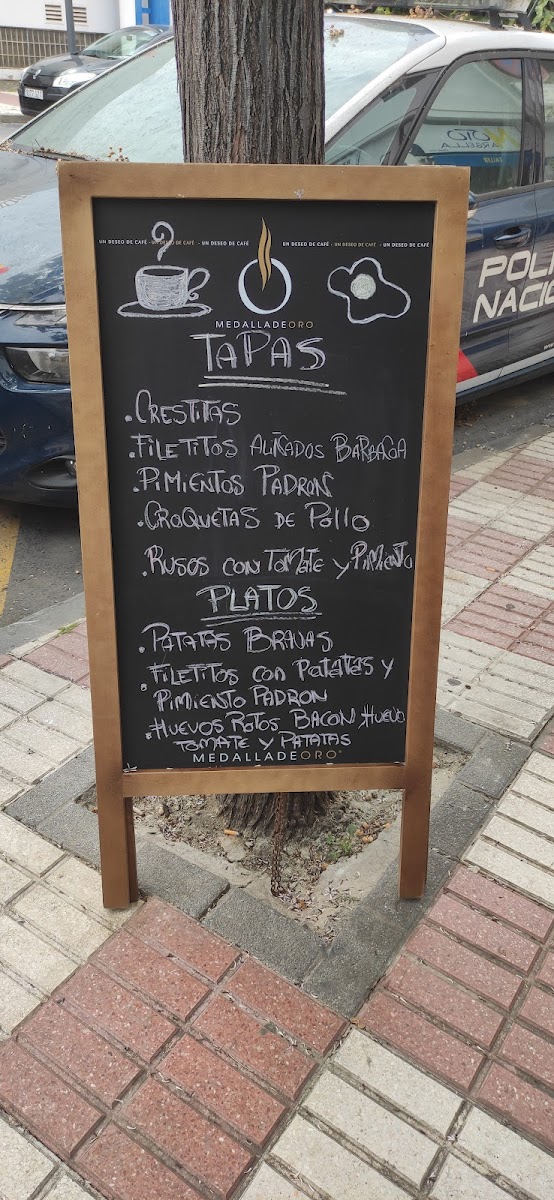 UN DESEO DE CAFÉ - UN DESEO DE CAFÉ - UN DESEO DE CAFÉ UN DESEO DE CAFÉ - UN DESEO DE CAFÉ - UN DESEO DE CAFÉ
MEDALLADEORO
TAPAS
.CRESTITAS
.FILETITOS ALIÑADOS BARBACOA
.PIMIENTOS PADRON
.CROQUETAS DE POLLO
.RUSOS CON TOMATE Y PIMIENTO
PLATOS
.PATATAS BRAVAS
.FILETITOS CON PATATAS Y
PIMIENTO PADRON
.HUEVOS ROTOS BACON HUEVO
TOMATE Y PATATAS
MEDALLADEORO
POLI
NACIO